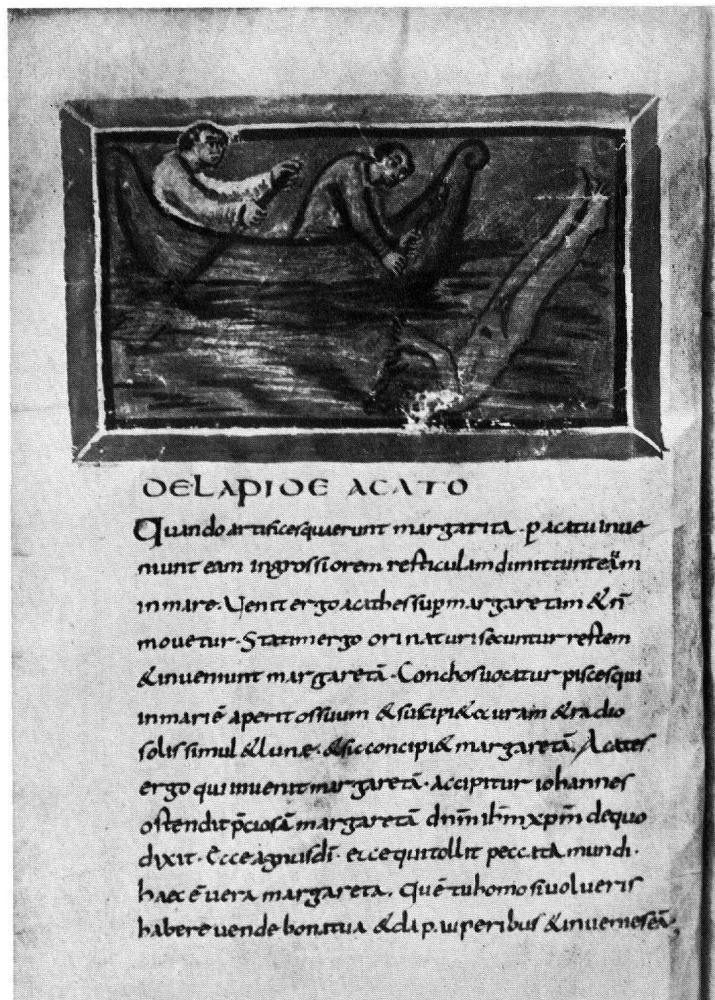 DE LAPIDE ACATO
Quando artifices querunt margarita. p acatu inve
niunt eam in grossiorem resticulam dimittunt eam
in mare. Venit ergo acathes sup margaretam & n̄
movetur. Statim ergo orinaturi secuntur restem
& inveniunt margaretā. Conchos vocatur pisces qui
in mari ē aperit os suum & suscipi& curam & radio
solis simul & lune. & sic concipi& margaretā. Acates
ergo qui invenit margaretā. accipitur iohannes
ostendit p̄ciosā margaretā dn̄m ih̄m xp̄m de quo
dixit. Ecce agnus dī. ecce qui tollit peccata mundi.
haec ē vera margareta. Quē tu homo si volueris
habere vende bona tua & da p. uperibus & invenies eā,